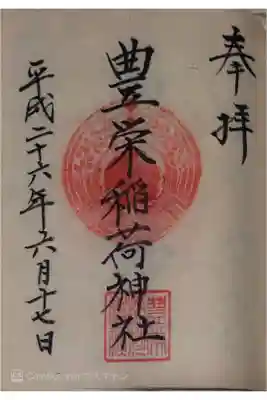 奉拝
豊栄稲荷神社
平成二十六年六月十七日